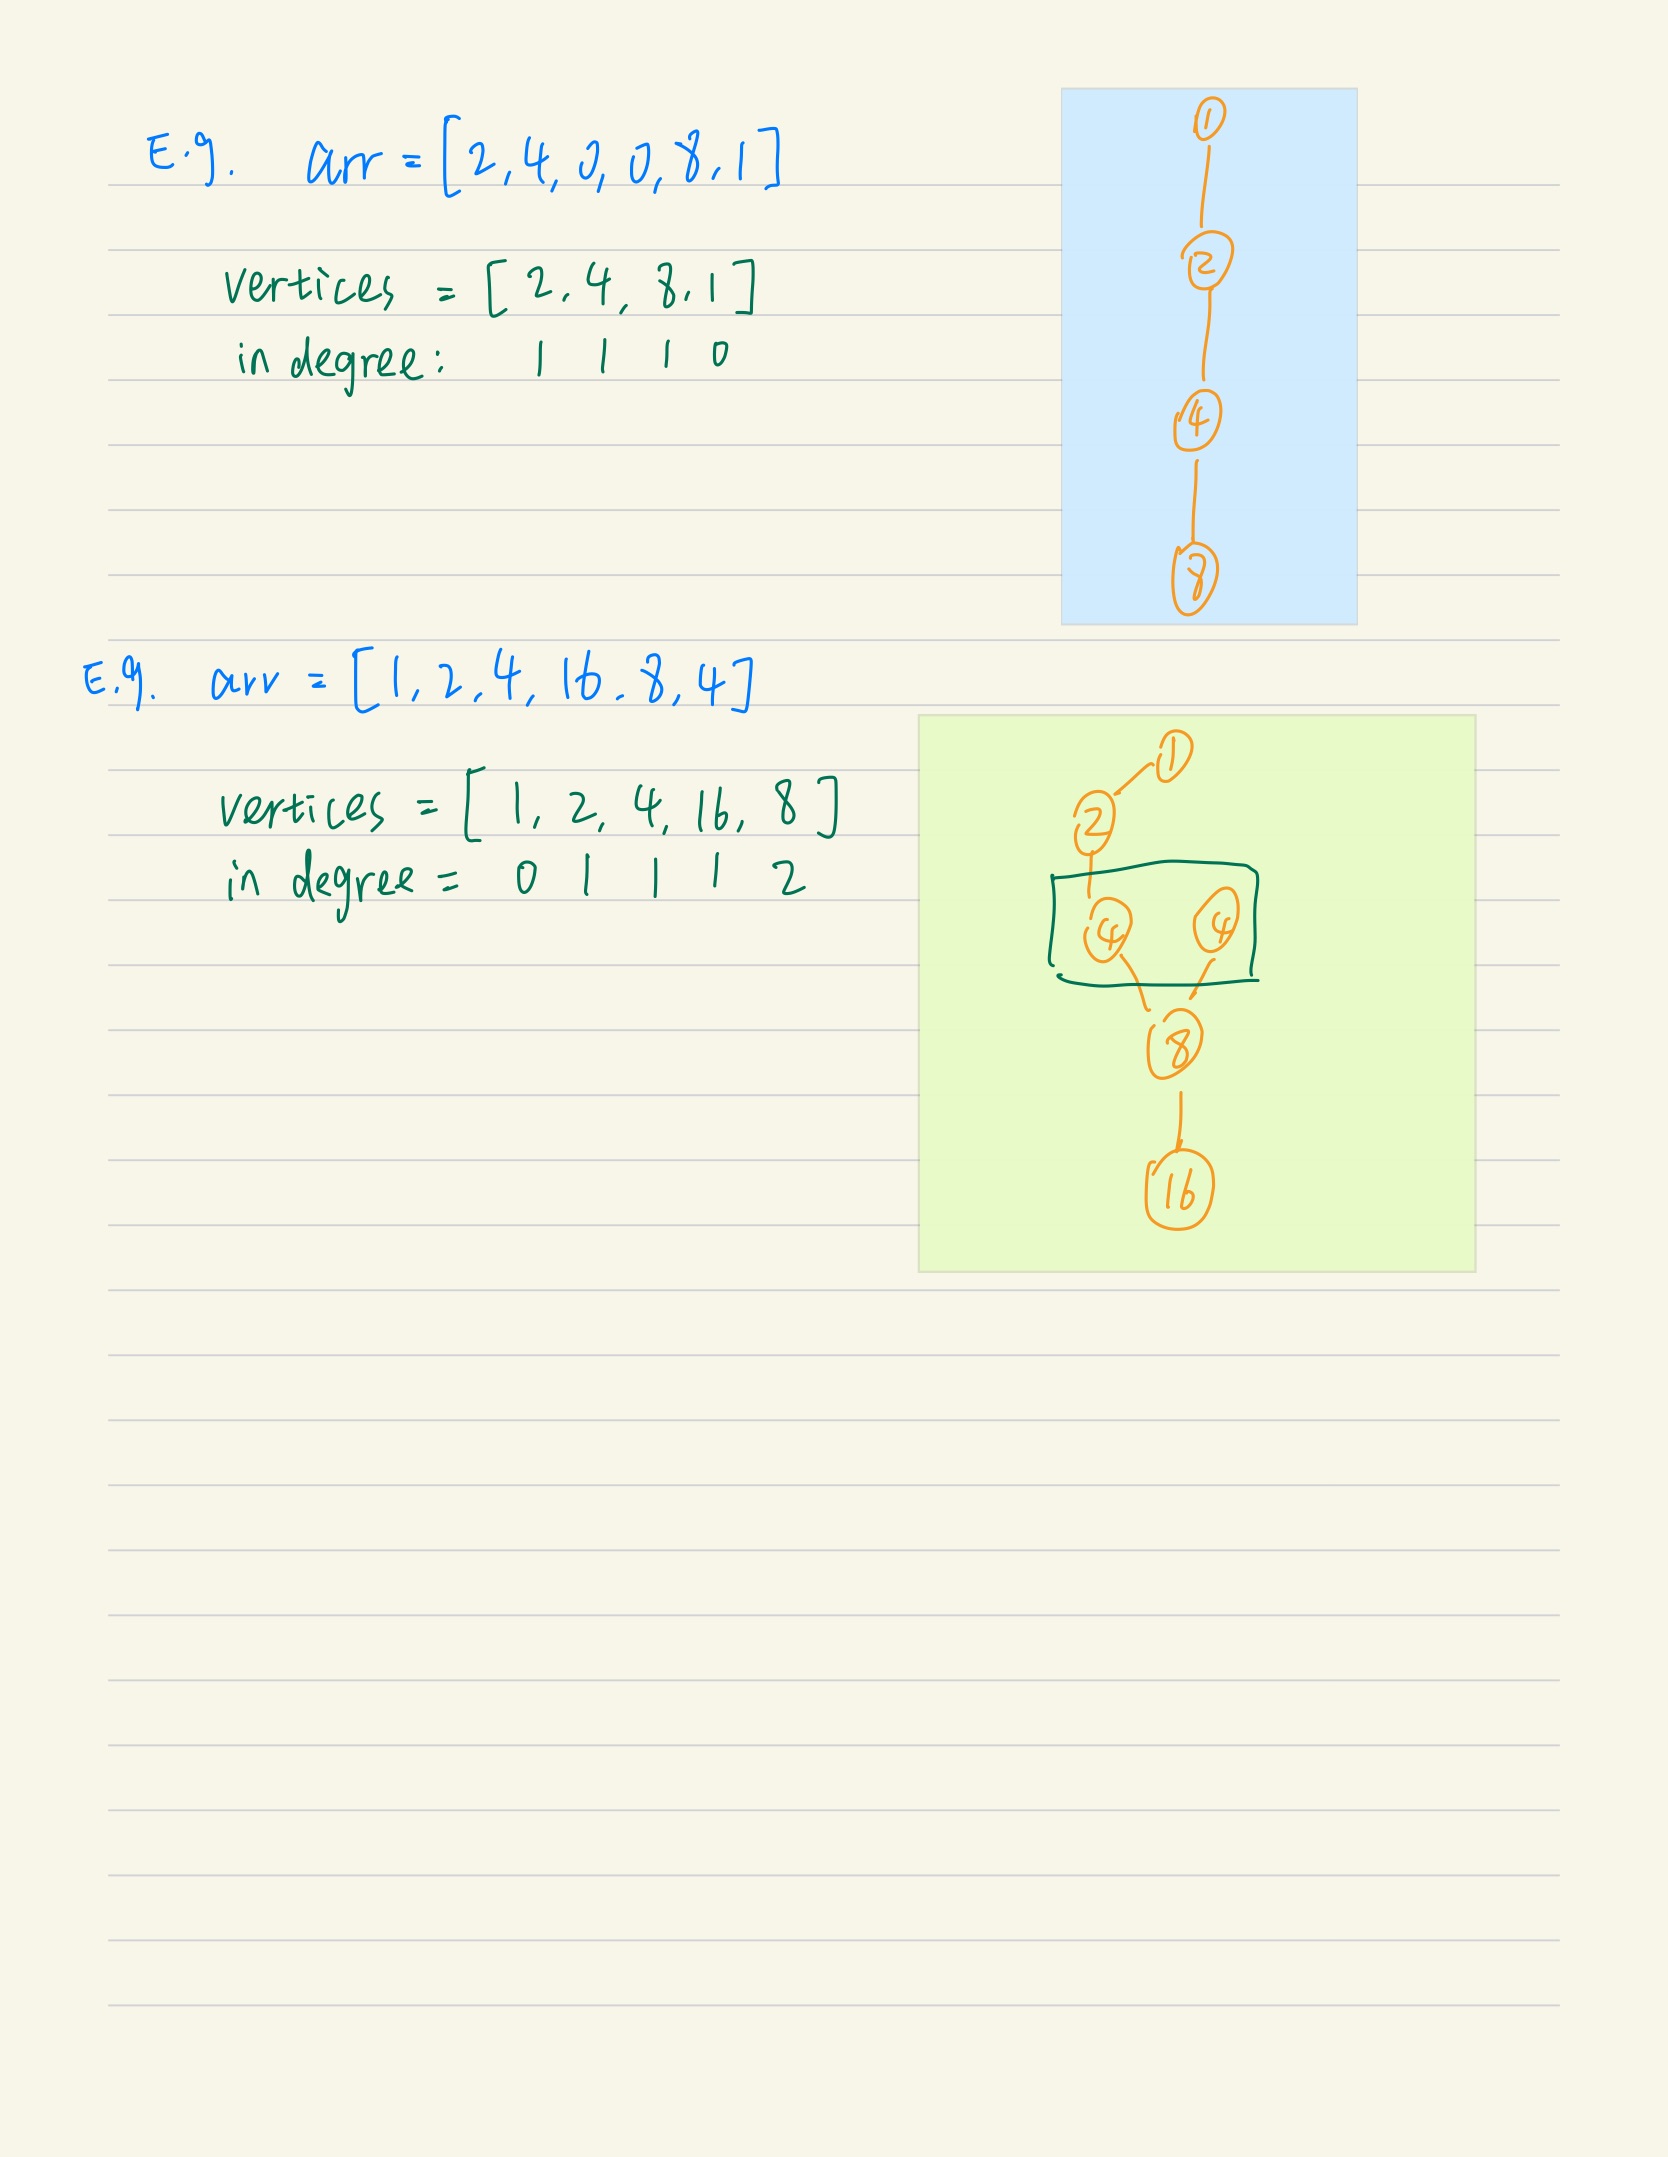 E.g. arr = [2, 4, 0, 0, 8, 1]
vertices = [2, 4, 8, 1]
in degree: 1 1 1 0
1
2
4
8
E.g. arr = [1, 2, 4, 16, 8, 4]
vertices = [1, 2, 4, 16, 8]
in degree = 0 1 1 1 2
1
2
4 4
8
16